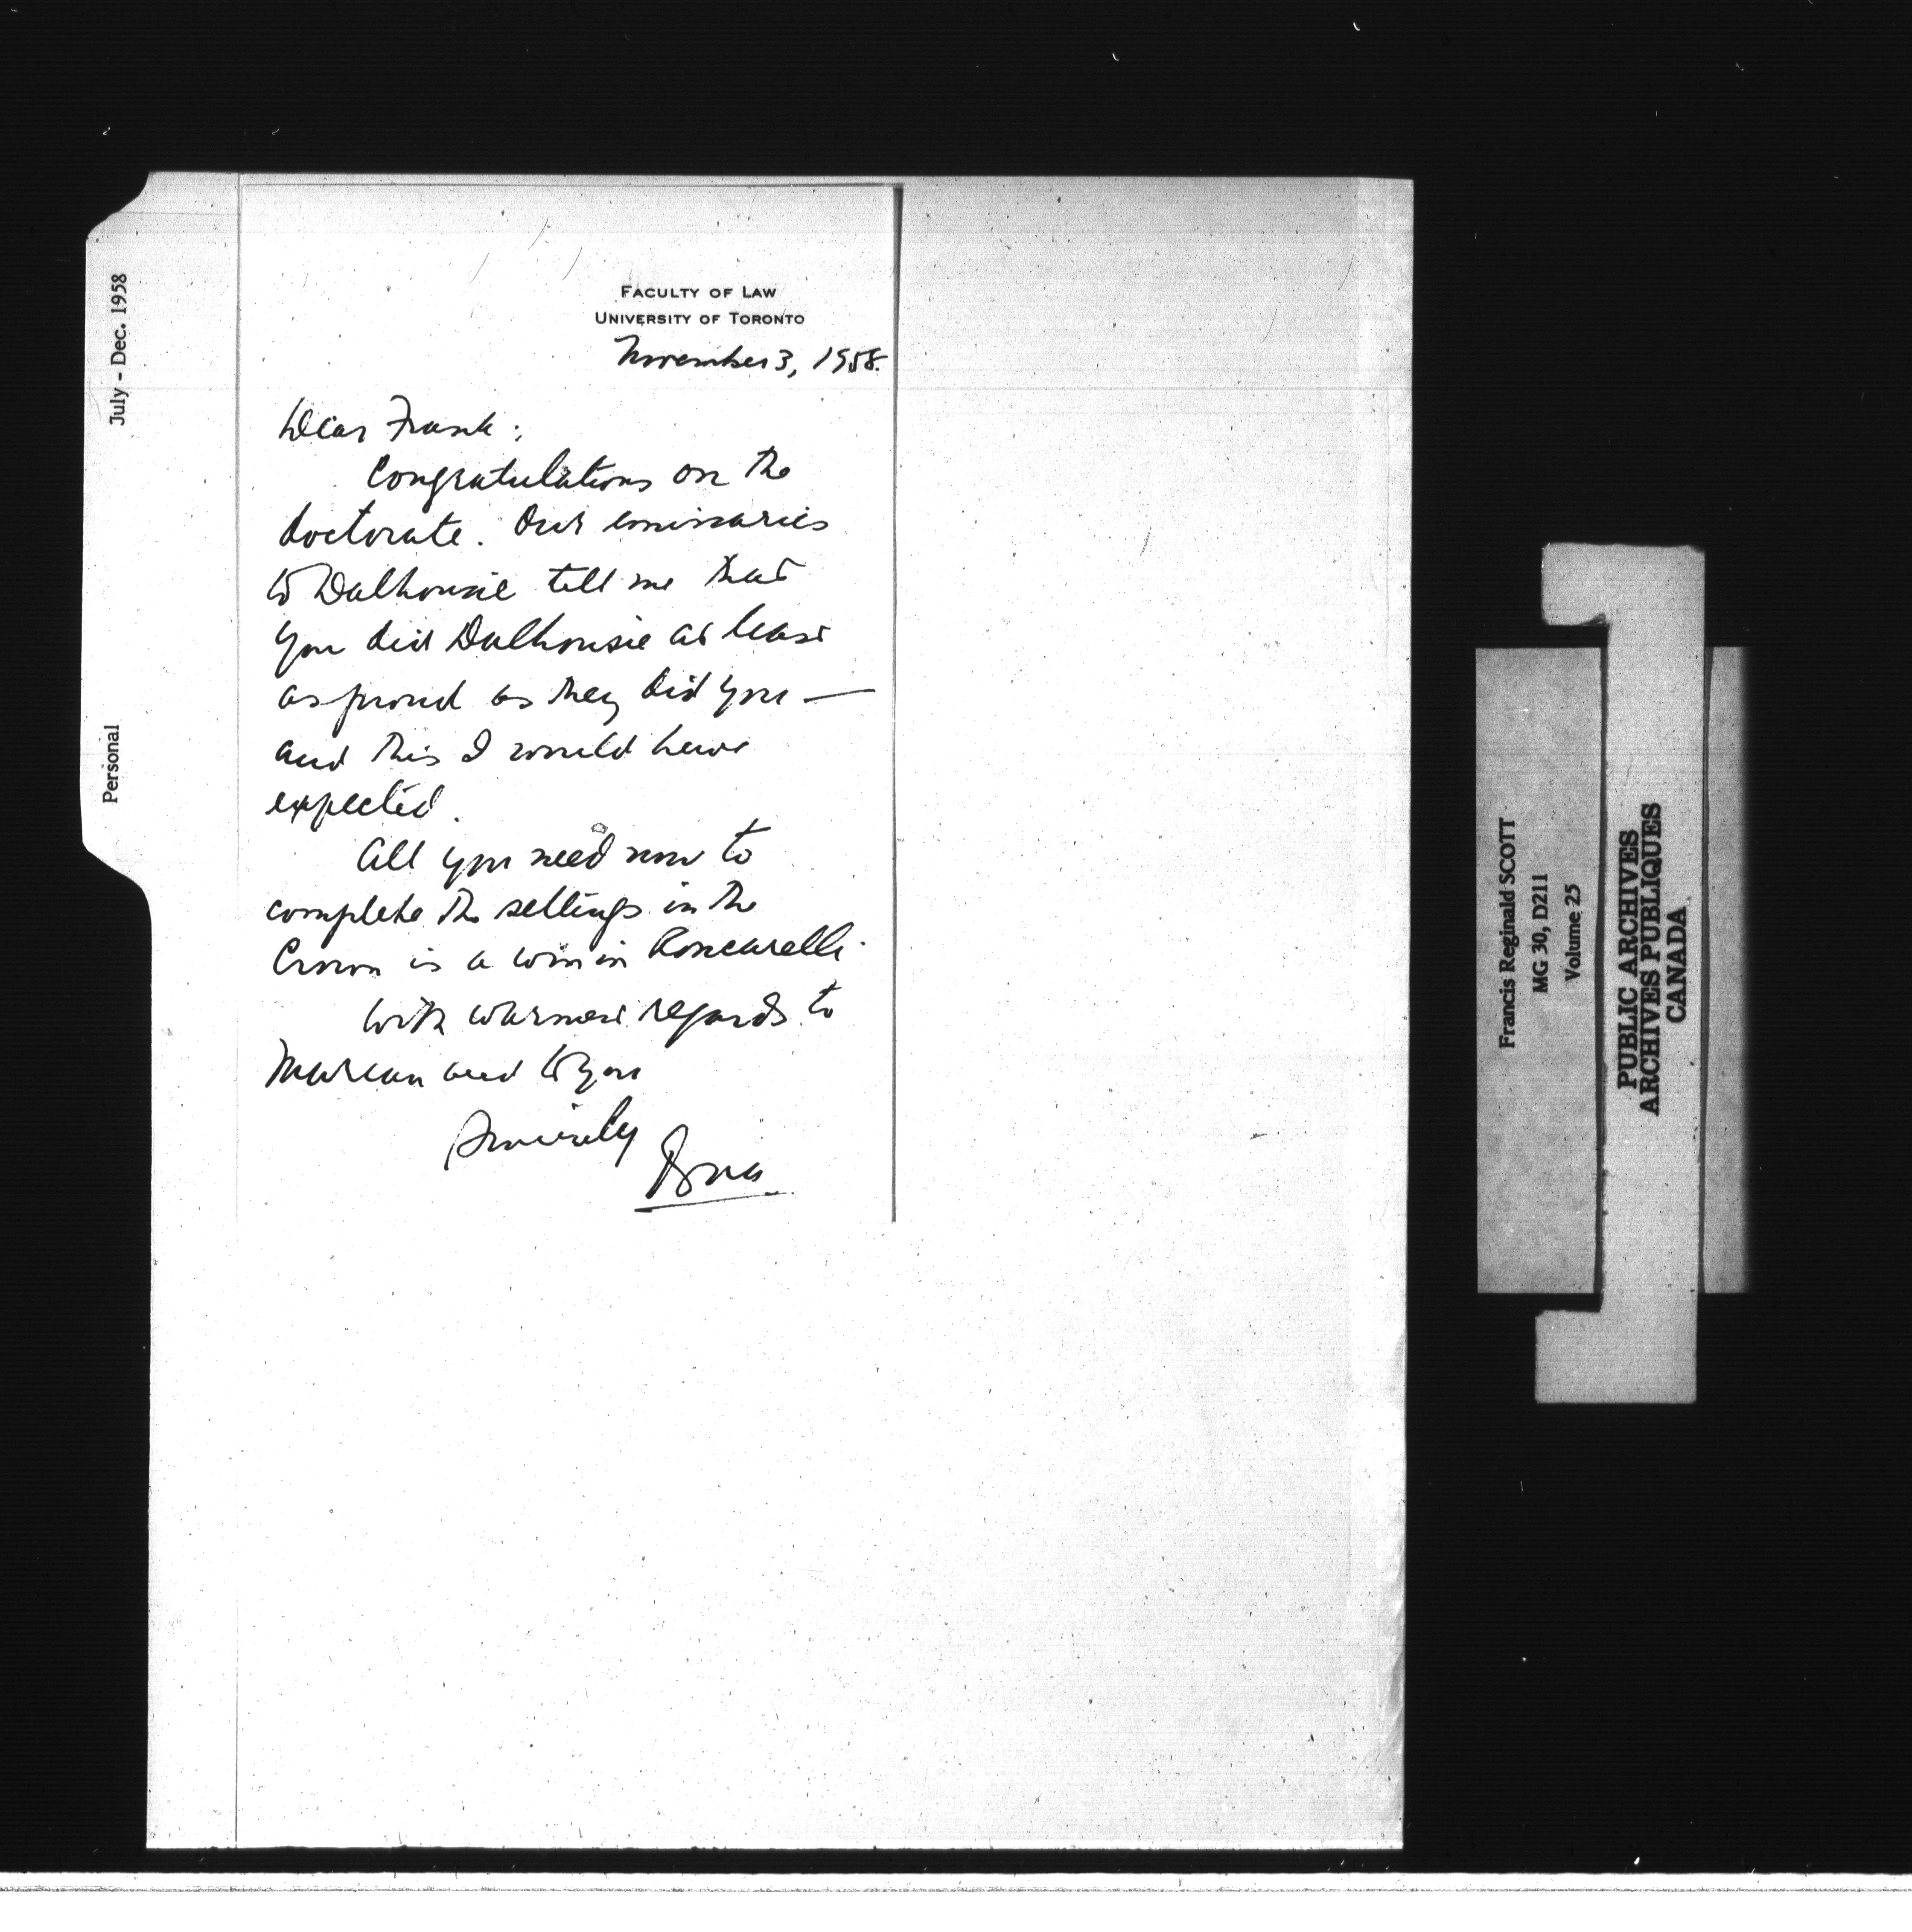 FACULTY OF LAW
UNIVERSITY OF TORONTO
November 3, 1958.
Dear Frank:
Congratulations on the
doctorate. Our emissaries
to Dalhousie tell me that
you did Dalhousie at least
as proud as they did you —
and this I would have
expected.
All you need now to
complete the settings in the
Crown is a win in Roncarelli.
With warmest regards to
Marian and to you
Sincerely
July - Dec. 1958
Personal
Francis Reginald SCOTT
MG 30, D211
Volume 25
PUBLIC ARCHIVES
ARCHIVES PUBLIQUES
CANADA